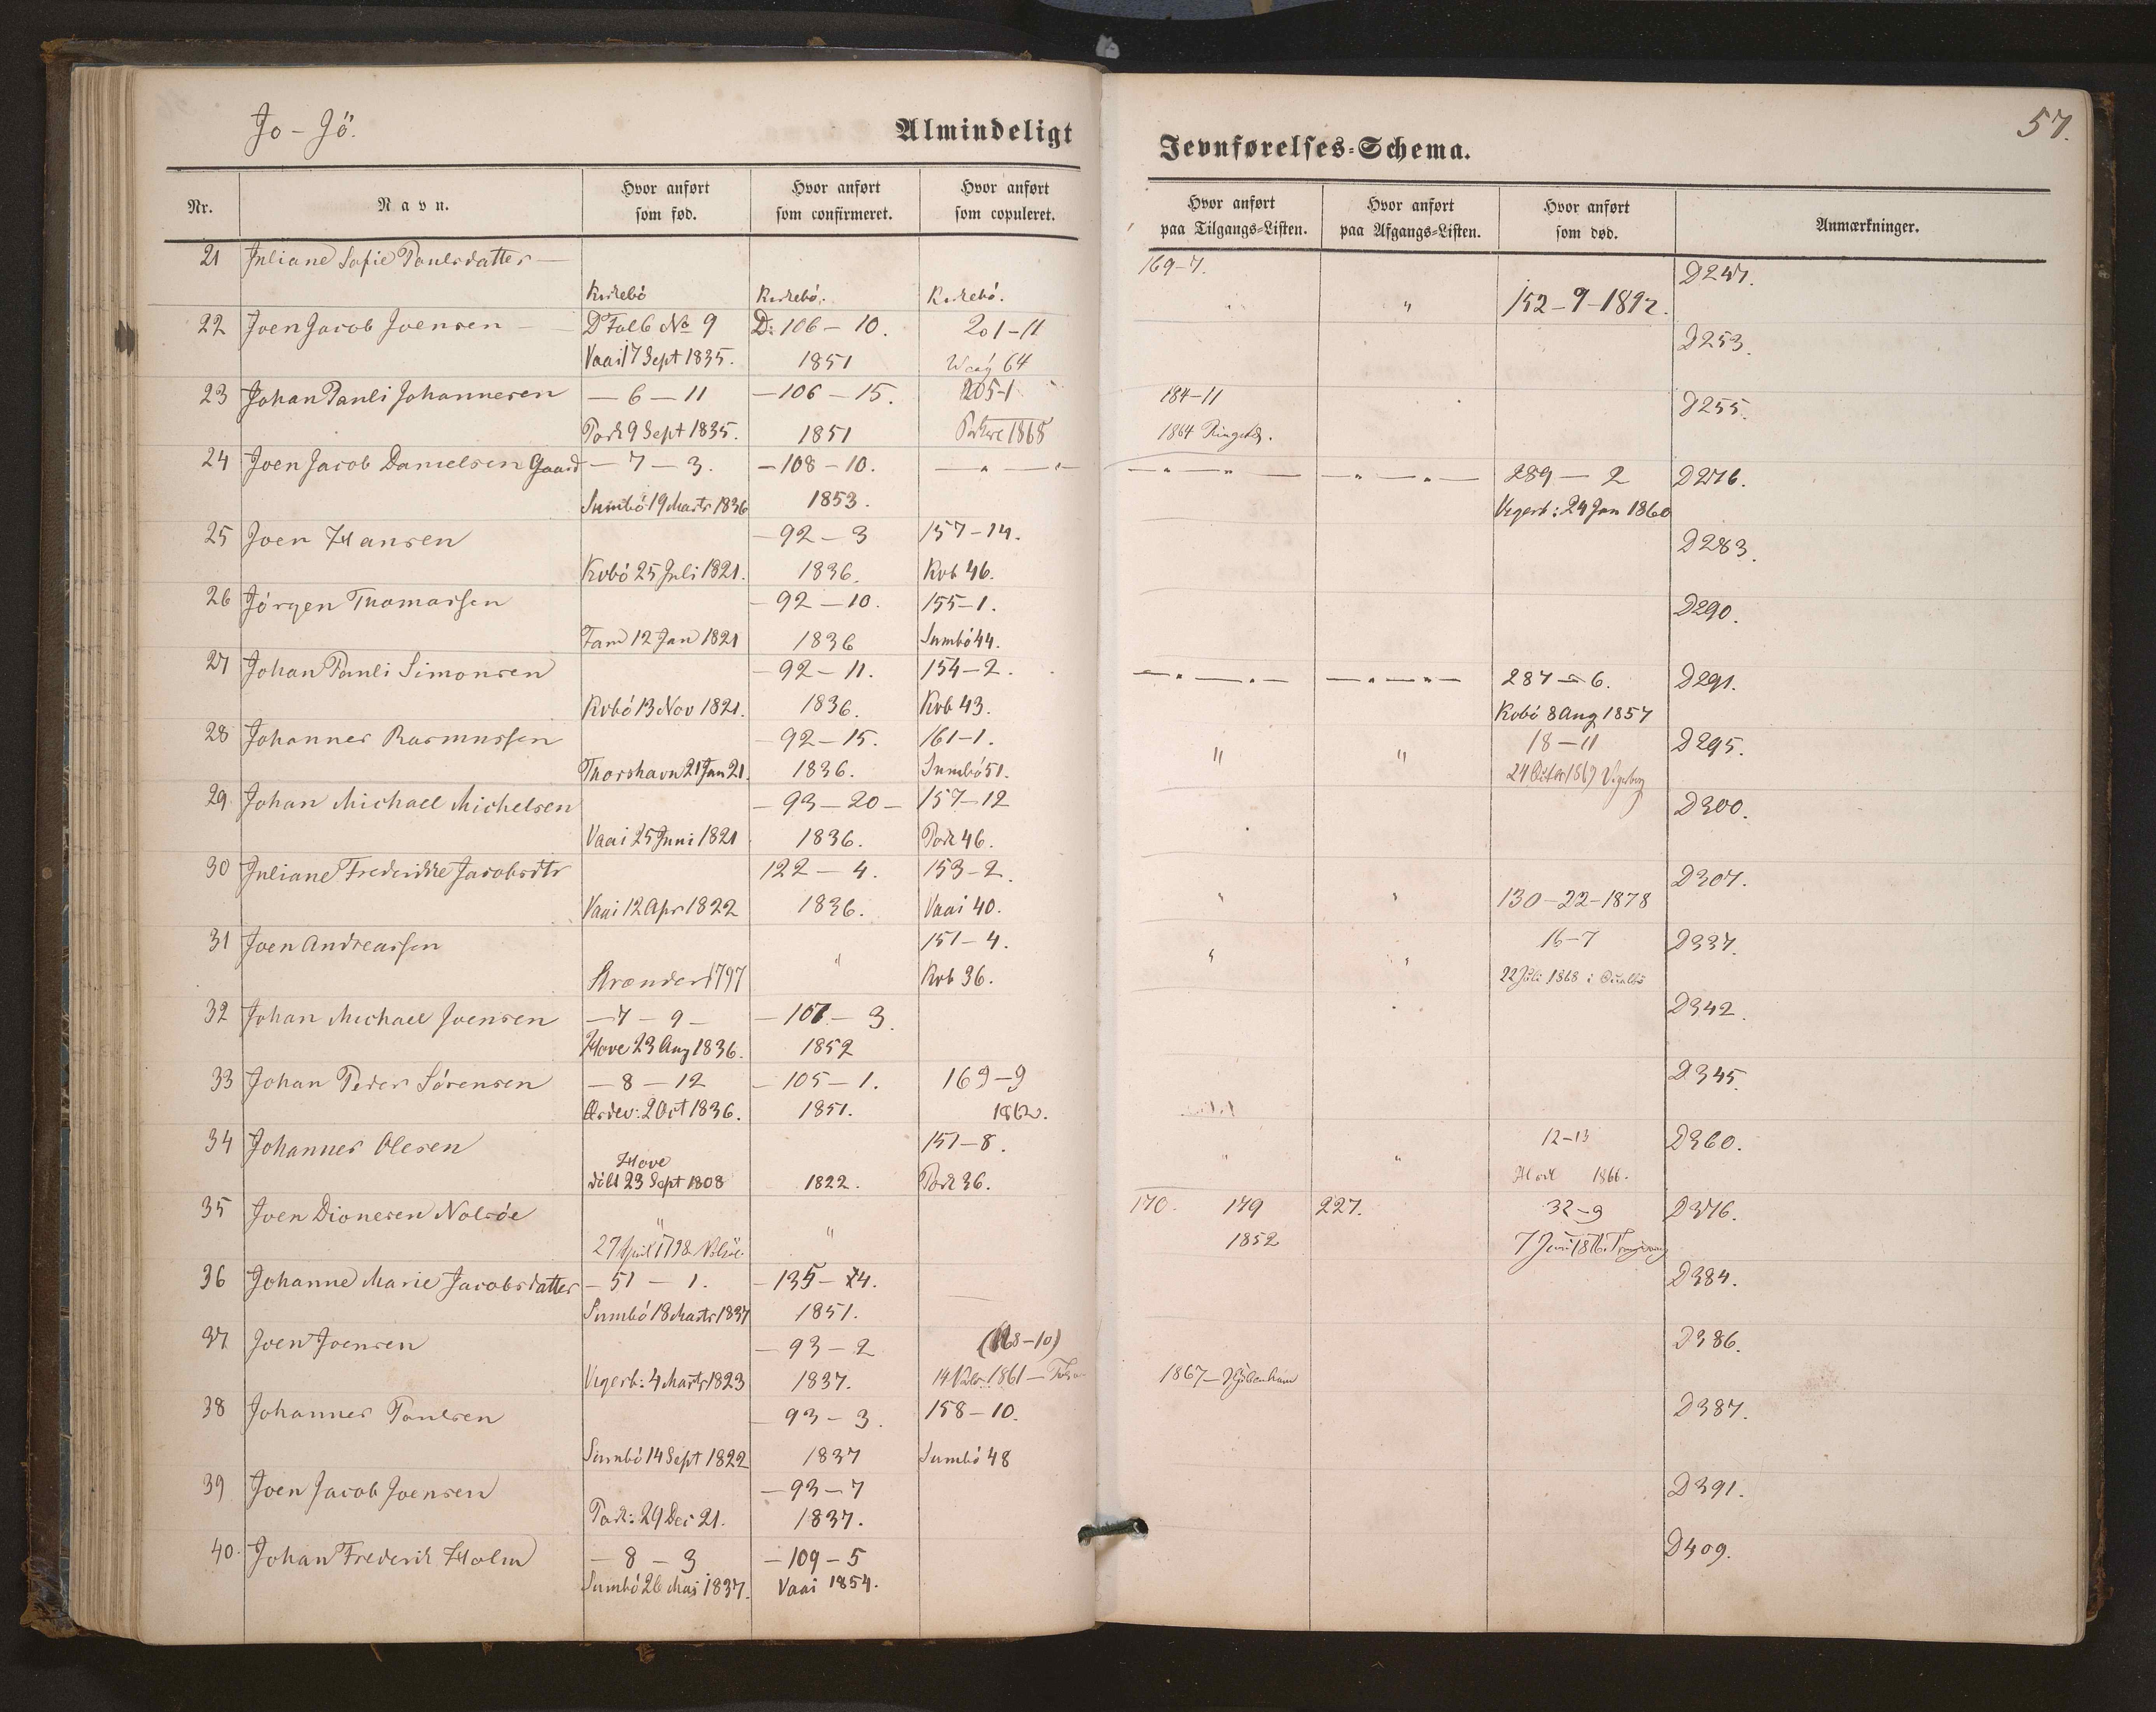 Jo - Jö.
Almindeligt
Jevnførelses-Schema.
57.
Nr. Navn. Hvor anført som fød. Hvor anført som confirmeret. Hvor anført som copuleret. Hvor anført paa Tilgangs-Listen. Hvor anført paa Afgangs-Listen. Hvor anført som død. Anmærkninger.
21 Juliane Sofie Poulsdatter — 169-7. D247.
Kirkebó Kirkebó. Kirkebó. " 152-9-1892.
22 Joen Jacob Joensen — D Fol 6 No 9 D: 106 — 10. 201-11 D253.
Vaai 17 Sept 1835. 1851 64
23 Johan Pauli Johannesen — 6 — 11 — 106 — 15. 205-1 184-11 D255.
Pork 9 Sept 1835. 1851 1868 1864
24 Joen Jacob Danielsen Gaard — 7 — 3. — 108 — 10. — " — " — " — " — — " — " — 289 — 2 D276.
Sumbó 19 Marts 1836 1853. Vegerb: 24 Jan 1860
25 Joen Hansen — 92 — 3 157-14. D283.
Kvbó 25 Juli 1821. 1836. Kvb 46.
26 Jórgen Thomassen — 92 — 10. 155-1. D290.
Fam 12 Jan 1821 1836 Sumbó 44.
27 Johan Pauli Simonsen — 92 — 11. 154-2. — " — " — — " — " — 287 — 6. D291.
Kvbó 13 Nov 1821. 1836. Kvb 43. Kvbó 8 Aug 1857
28 Johannes Rasmussen — 92 — 15. 161-1. " " 18-11 D295.
Thorshavn 21 Jan 21. 1836. Sumbó 51. 24 1869
29 Johan Michael Michelsen — 93 — 20 — 157-12 D300.
Vaai 25 Juni 1821 1836. Pork 46.
30 Juliane Frederikke Jacobsdtr 122 — 4. 153-2. D307.
Vaai 12 Apr 1822 1836. Vaai 40. " " 130-22-1878
31 Joen Andreassen 151-4. 16-7 D337.
Strænder 1797 " Kvb 36. " " 22 Juli 1868 i
32 Johan Michael Joensen — 7 — 9 — — 107 — 3. D342.
Hove 23 Aug 1836. 1852
33 Johan Peder Sórensen — 8 — 12 — 105 — 1. 169-9 D345.
Ordev: 2 Oct 1836. 1851. 1862.
34 Johannes Olesen 151-8. 12-13 D360.
Hove
23 Sept 1808 1822. Pork 36. " " 1866.
35 Joen Dionesen Nolsóe " 170. 179 227. 32-9 D376.
27 April 1798 " 1852 7 Juni
36 Johanne Marie Jacobsdatter — 51 — 1. — 135 — 24. D384.
Sumbó 18 Marts 1837 1851.
37 Joen Joensen — 93 — 2 (168-10) D386.
Vegerb: 4 Marts 1823 1837. 14 1861 — 1867 —
38 Johannes Poulsen — 93 — 3. 158-10. D387.
Sumbó 14 Sept 1822 1837 Sumbó 48
39 Joen Jacob Joensen — 93 — 7 D391.
Pork: 29 Dec 21. 1837.
40. Johan Frederik Holm — 8 — 3 — 109 — 5 D409.
Sumbó 26 Mai 1837. Vaai 1854.